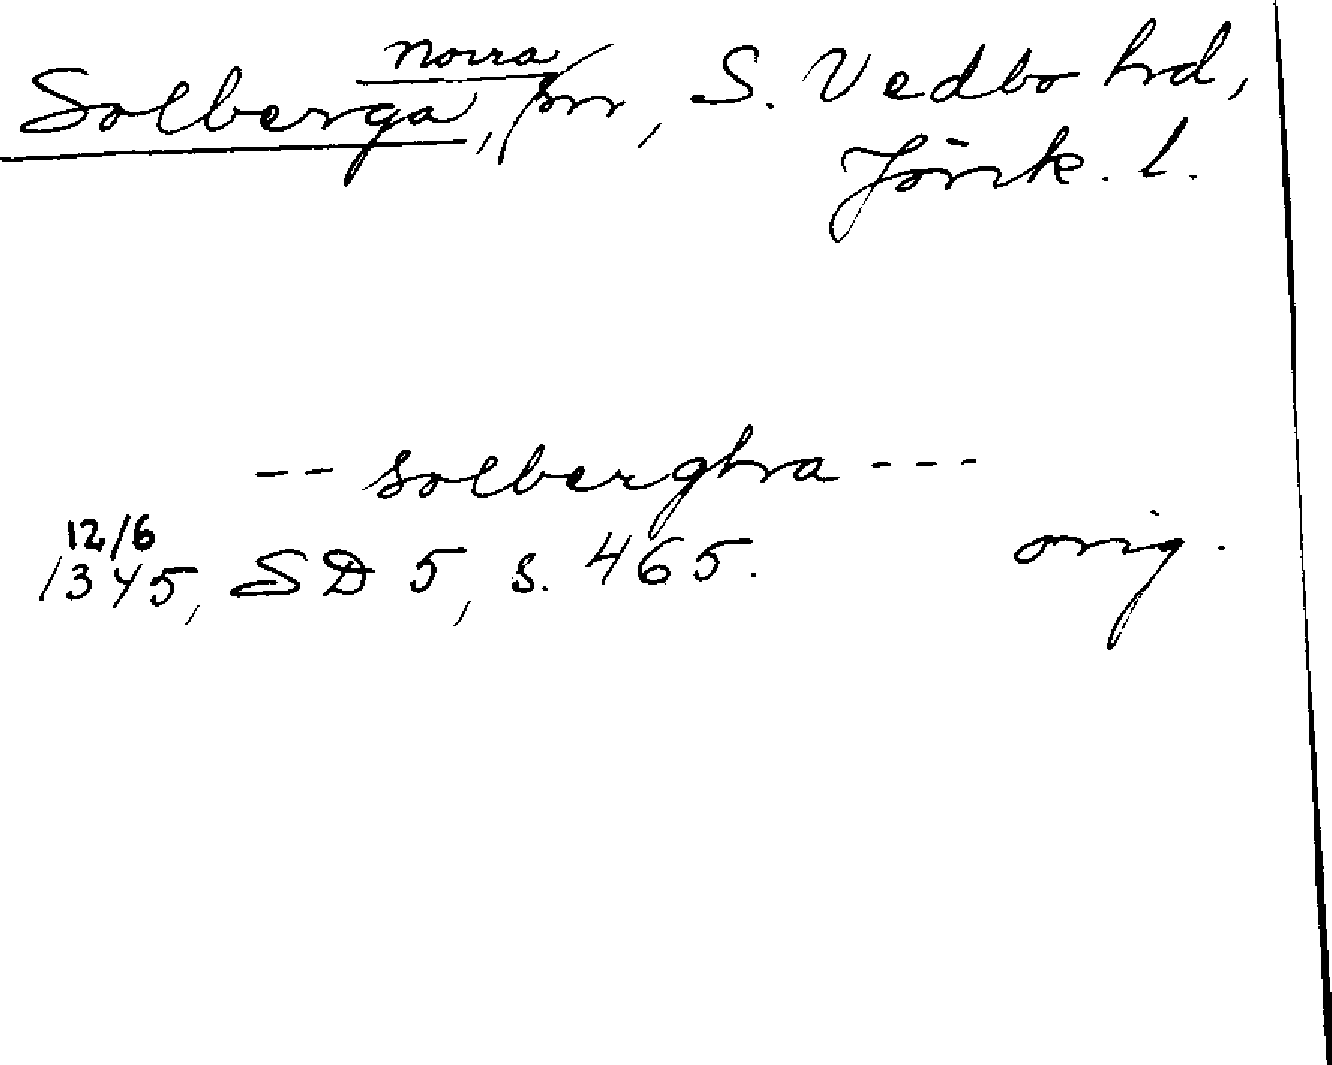 Norra
Solberga, sn, S. Vedbo hd,
Jönk. l.
-- solbergha ---
12/6
1345, SD 5, s. 465. orig.